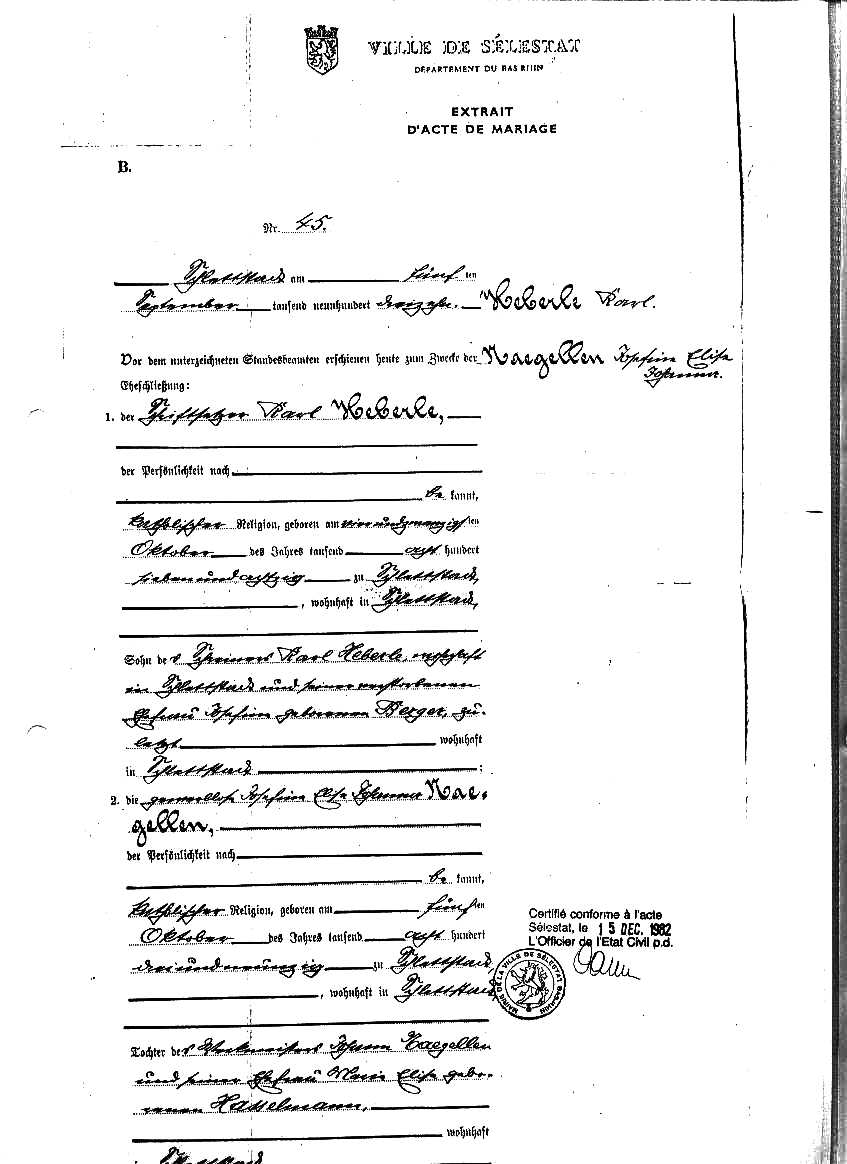 VILLE DE SÉLESTAT
DÉPARTEMENT DU BAS RHIN
EXTRAIT
D'ACTE DE MARIAGE
B.
Nr. 45.
Schlettstadt am fünf ten
September tausend neunhundert dreizehn.
Heberle Karl.
Vor dem unterzeichneten Standesbeamten erschienen heute zum Zwecke der
Naegellen Josefin Elisa
Johanna.
Eheschließung:
1. der Schriftsetzer Karl Heberle,
der Persönlichkeit nach
be kannt,
katholischer Religion, geboren am vierundzwanzigsten
Oktober des Jahres tausend acht hundert
siebenundachtzig zu Schlettstadt,
, wohnhaft in Schlettstadt,
Sohn des Schreiners Karl Heberle, wohnhaft
in Schlettstadt und seiner verstorbenen
Ehefrau Josefin geborenen Berger, zu-
letzt wohnhaft
in Schlettstadt ;
2. die gewerblose Josefin Elisa Johanna Nae-
gellen,
der Persönlichkeit nach
be kannt,
katholischer Religion, geboren am fünften
Oktober des Jahres tausend acht hundert
dreiundneunzig zu Schlettstadt,
, wohnhaft in Schlettstadt
Certifié conforme à l'acte
Sélestat, le 15 DEC. 1982
L'Officier de l'Etat Civil p.d.
MAIRIE DE LA VILLE DE SÉLESTAT BAS-RHIN
Tochter des Werkmeisters Johann Naegellen
und seiner Ehefrau Maria Elisa gebo-
renen Hasselmann,
wohnhaft
Schlettstadt